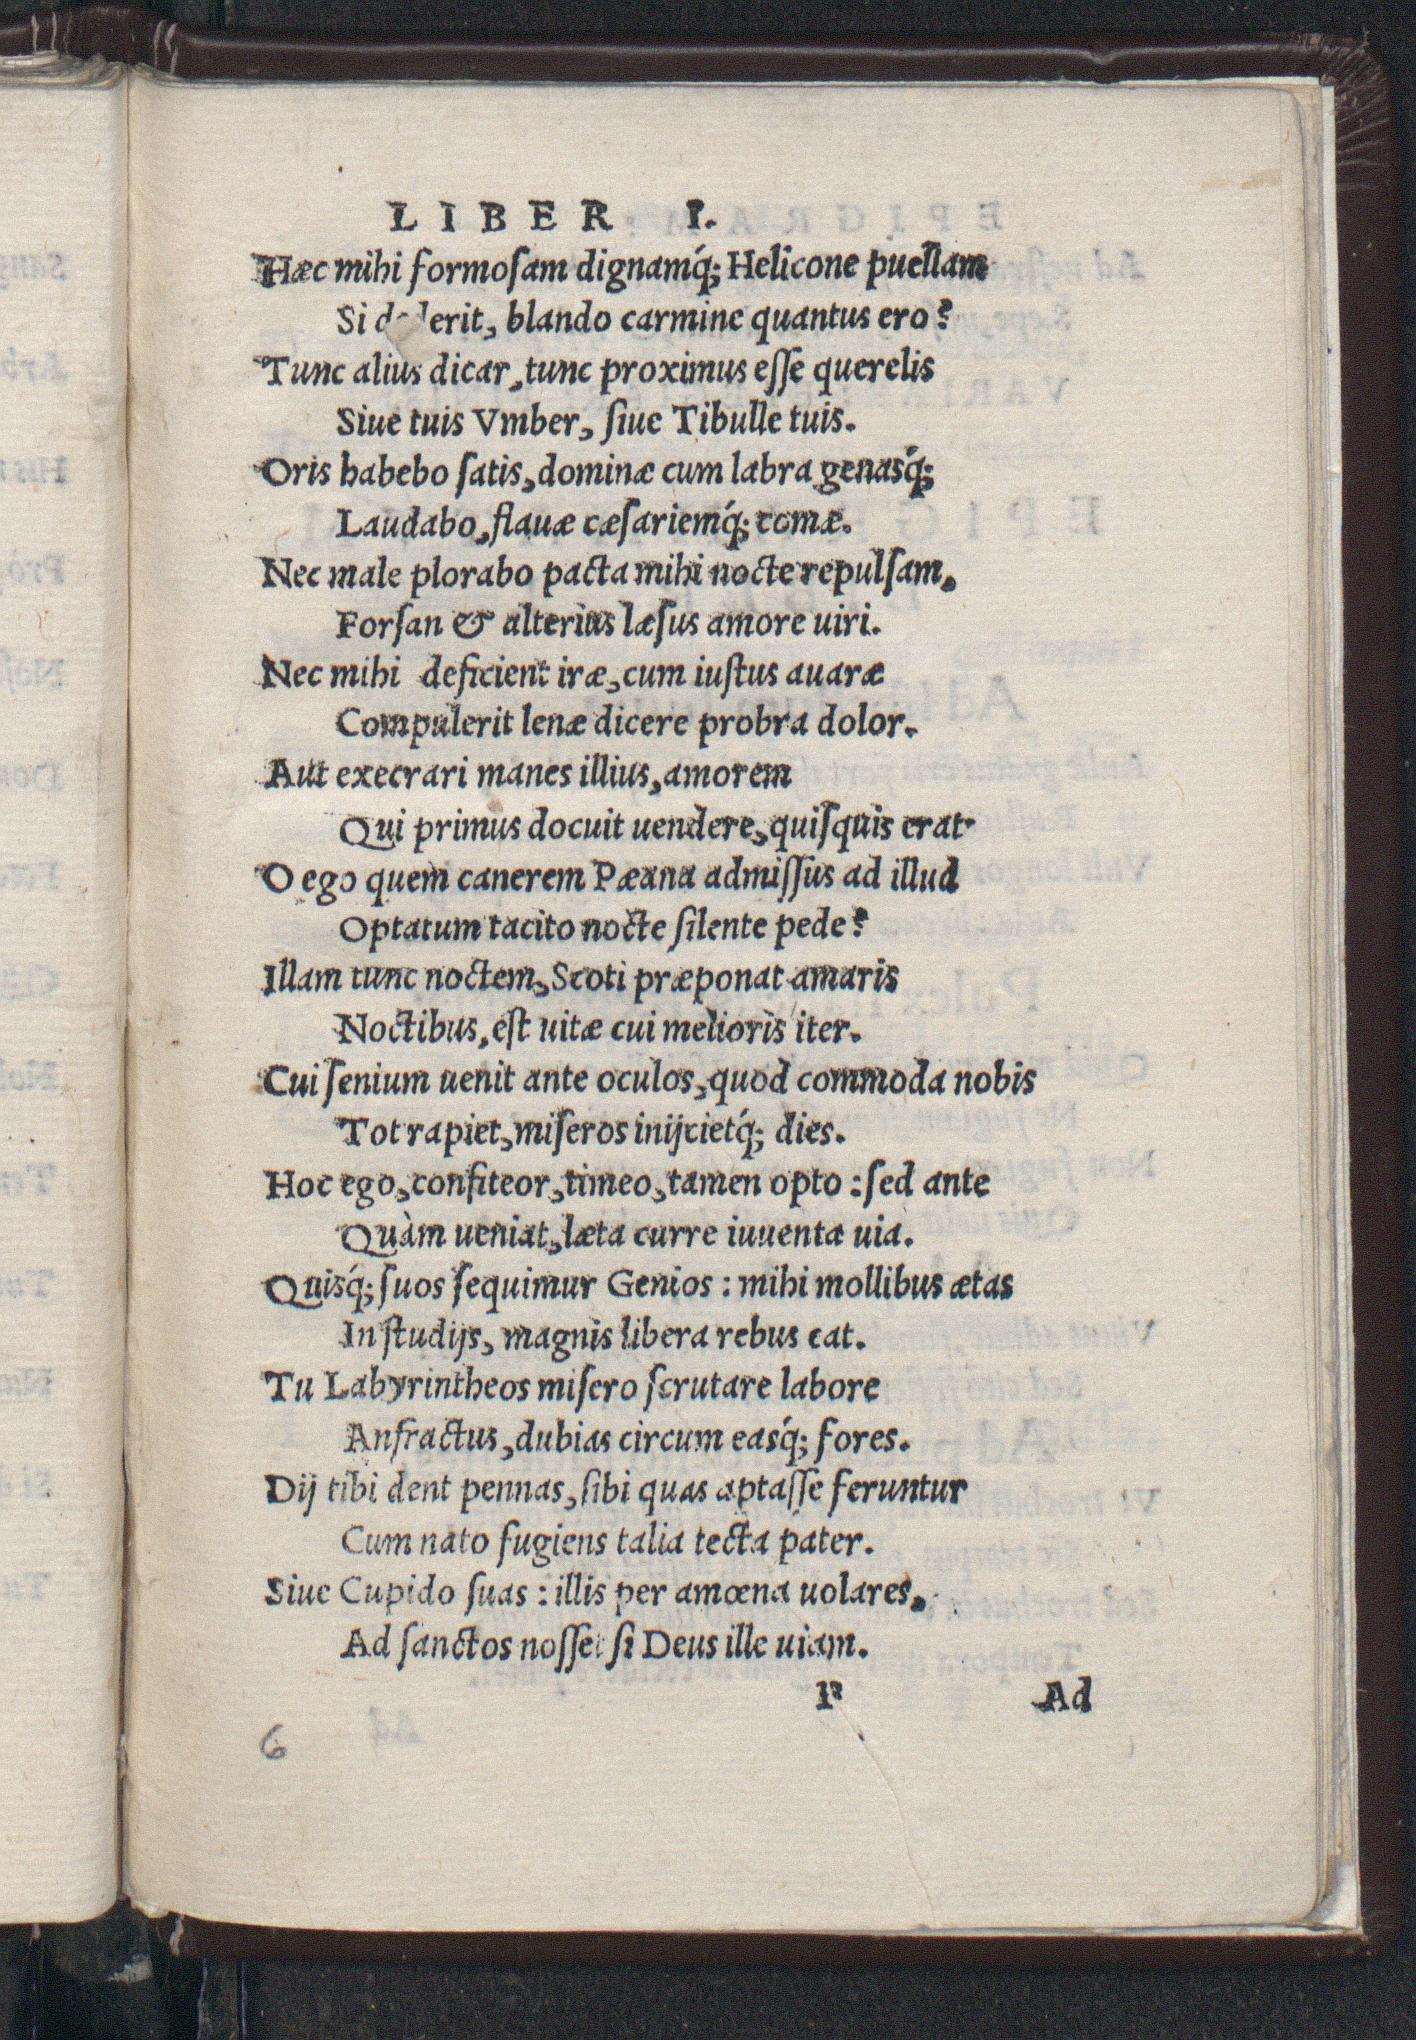 LIBER I.
Hæc mihi formoſam dignamq́; Helicone puellam
Si dederit, blando carmine quantus ero?
Tunc alius dicar, tunc proximus eſſe querelis
Siue tuis Vmber, ſiue Tibulle tuis.
Oris habebo ſatis, dominæ cum labra genasq́;
Laudabo, flauæ cæſariemq́; comæ.
Nec male plorabo pacta mihi nocte repulſam,
Forſan & alterius læſus amore uiri.
Nec mihi deficient iræ, cum iuſtus auaræ
Compulerit lenæ dicere probra dolor.
Aut execrari manes illius, amorem
Qui primus docuit uendere, quiſquis erat.
O ego quem canerem Pæana admiſſus ad illud
Optatum tacito nocte ſilente pede?
Illam tunc noctem, Scoti præponat amaris
Noctibus, eſt uitæ cui melioris iter.
Cui ſenium uenit ante oculos, quod commoda nobis
Tot rapiet, miſeros inijcietq́; dies.
Hoc ego, confiteor, timeo, tamen opto: ſed ante
Quàm ueniat, læta curre iuuenta uia.
Quisq́; ſuos ſequimur Genios: mihi mollibus ætas
In ſtudijs, magnis libera rebus eat.
Tu Labyrintheos miſero ſcrutare labore
Anfractus, dubias circum easq́; fores.
Dij tibi dent pennas, ſibi quas aptaſſe feruntur
Cum nato fugiens talia tecta pater.
Siue Cupido ſuas: illis per amœna uolares,
Ad ſanctos noſſet ſi Deus ille uiam.
Ad
6